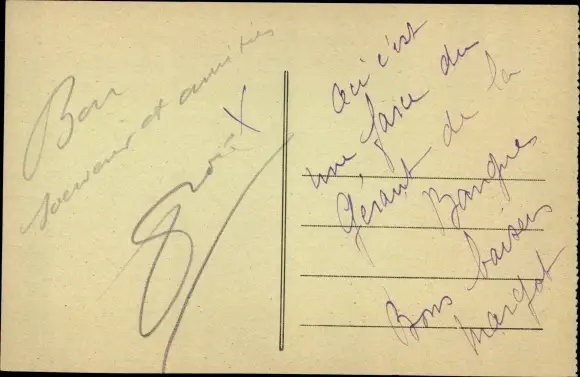 Bon
souvenir et amitiés
X
Ceci c'est
une farce du
Gérant de la
Banque
Bons baisers
Margot